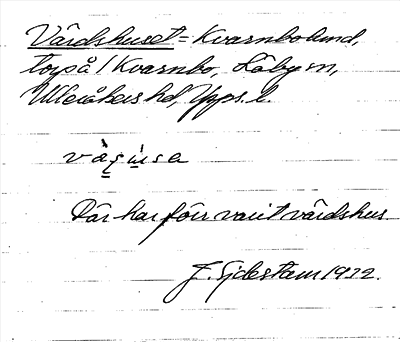 Värdshuset = Kvarnbolund,
torp å / Kvarnbo, Läby sn,
Ulleråkers hd, Upps. l.
Där har förr varit värdshus
1932.